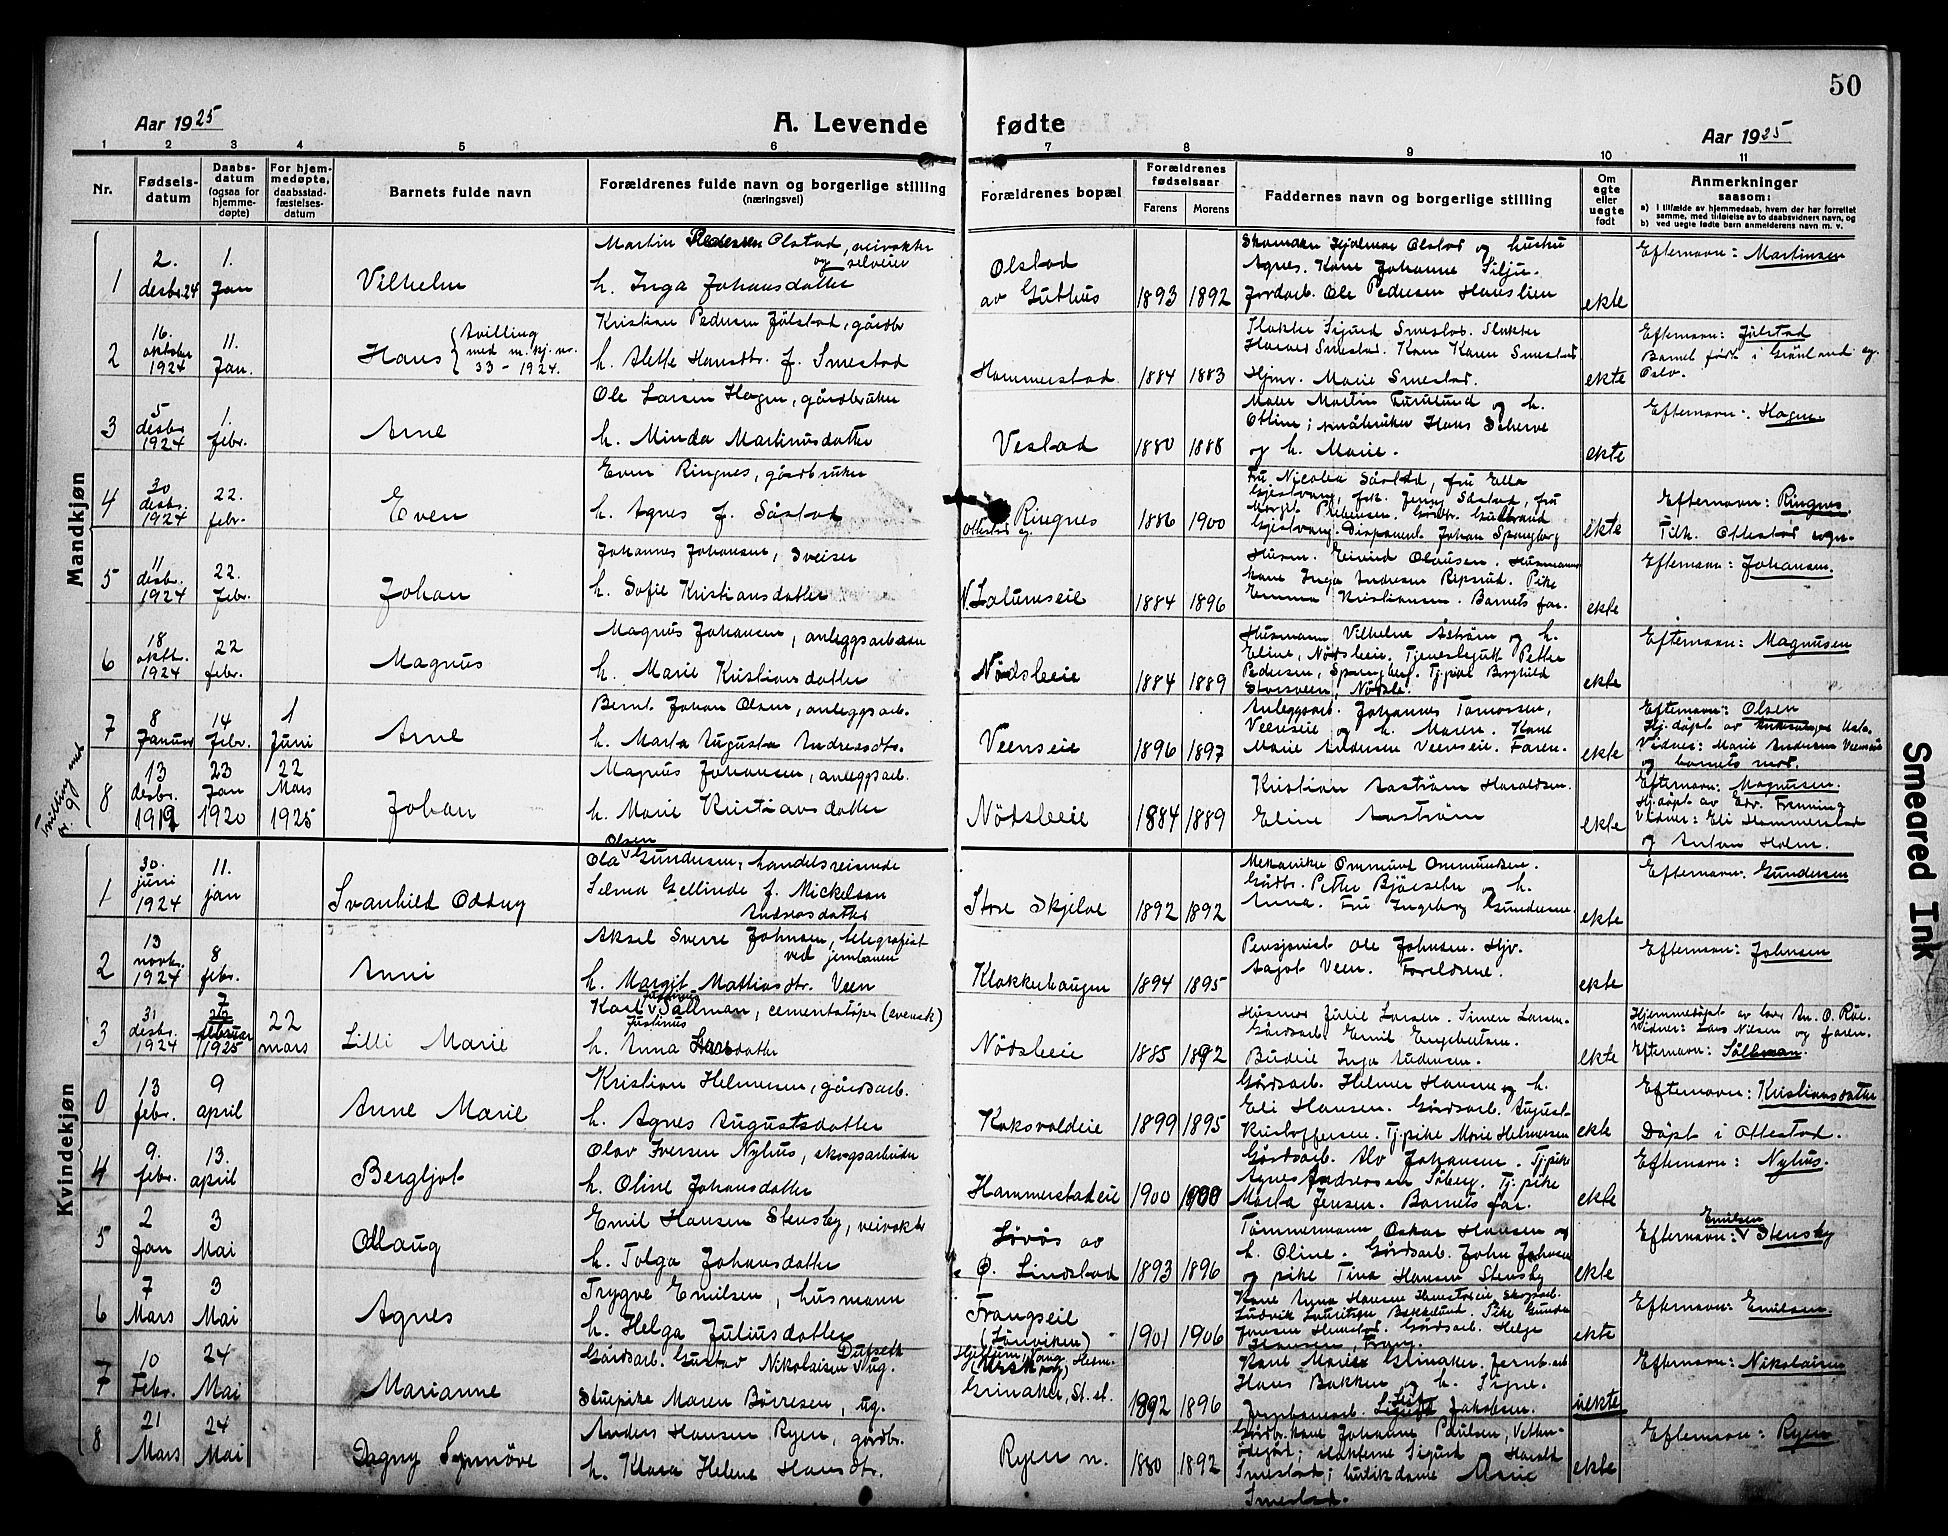 50
Aar 1925
A. Levende fødte
Aar 1925
1 2 3 4 5 6 7 8 9 10 11
Nr.
Fødsels-
datum
Daabs-
datum
(ogsaa for
hjemme-
døpte)
For hjem-
medøpte,
daabsstad-
fæstelses-
datum
Barnets fulde navn
Forældrenes fulde navn og borgerlige stilling
(næringsvei)
Forældrenes bopæl
Forældrenes
fødselsaar
Farens Morens
Faddernes navn og borgerlige stilling
Om
egte
eller
uegte
født
Anmerkninger
saasom:
a) I tilfælde av hjemmedaab, hvem der har forrettet
samme, med tilføielse av to daabsvidners navn, og
b) ved uegte fødte barn anmelderens navn m. v.
Mandkjøn
1
2. desbr. 24
1. Jan
Vilhelm
Martin Pedersen Olstad, veivokter
og selveier
h. Inga Johansdatter
Olstad
av Guthus
1893 1892
Skomaker Hjalmar Olstad og hustru
Agnes. Kone Johanne Silju.
Jordarb. Ole Pedersen Hanslien
ekte
Efternavn: Martinsen
2
16. oktober 1924
11. Jan.
Hans
tvilling
med m. kj. nr.
33 - 1924.
Kristian Pedersen Jølstad, gårdbr
h. Alette Hansdtr. f. Smestad
Hammerstad
1884 1883
Slakter Sjurd Smestad. Slakter
Harald Smestad. Kone Karen Smestad
Hjmv. Marie Smestad.
ekte
Efternavn: Jølstad
Barnet født i Grønland sg.
Oslo.
3
5 desbr 1924
1. febr.
Arne
Ole Larsen Hagen, gårdbruker
h. Minda Martinusdatter
Vestad
1880 1888
Maler Martin Furulund og h.
Otline; småbruker Hans Scherve
og h. Marie.
ekte
Efternavn: Hagen
4
30 desbr. 1924
22. febr.
Even
Even Ringnes, gårdbruker
h. Agnes f. Såstad
Ringnes
Ottestad sg.
1886 1900
Fru Nicolea Såstad, fru Ella
Gjestvang, frk. Jenny Såstad, fru
Margit Pedersen. Gårdbr. Gulbrand
Gjestvang. Disponent Johan Spangberg
ekte
Efternavn: Ringnes.
Tilh. Ottestad sogn.
5
11 desbr. 1924
22. febr.
Johan
Johannes Johansen, sveiser
h. Sofie Kristiansdatter
N. Lalumseie
1884 1896
Husm. Eivind Olausen. Husmanns
kone Inga Andresen Repsrud. Pike
Emma Kristiansen. Barnets far.
ekte
Efternavn: Johansen.
6
18 oktbr. 1924
22 febr.
Magnus
Magnus Johansen, anleggsarbeider
h. Marie Kristiansdatter
Nødsleeie
1884 1889
Husmann Vilhelm Aström og h.
Eline, Nødsleeie. Tjenestegutt Petter
Pedersen, Spangberg. Tj.pike Borghild
Storsveen, Nødsle.
ekte
Efternavn: Magnusen
7
8 Januar
14 febr.
1 Juni
Arne
Bernt Johan Olsen, anleggsarb.
h. Marta Augusta Andreasdtr.
Veenseie
1896 1897
Anleggsarb. Johannes Tomassen,
Veenseie og h. Maren. Kone
Marie Andersen Veenseie. Faren.
ekte
Efternavn: Olsen
Hj.døpt av
Vidner: Marie Andersen Veenseie
og barnets mor.
Tvilling med
nr. 9
8
13 desbr. 1919
23 Jan 1920
22 Mars 1925
Johan
Magnus Johansen, anleggsarb.
h. Marie Kristiansdatter
Nødsleeie
1884 1889
Kristian Aastrøm Haraldsen.
Eline Aastrøm
ekte
Efternavn: Magnussen.
Hj.døpt av Edv. Frenning
Vidner: Eli Hammerstad
og Anton Holm.
Kvindekjøn
1
30. juni 1924
11. jan
Svanhild Oddny
Olsen
Ola Gundersen, handelsreisende
Selma Gellinde f. Mickelson
Andreasdatter
Store Skjelve
1892 1892
Mekaniker Ommund Ommundsen.
Gårdbr. Petter Bjørseth og h.
Anna. Fru Ingeborg Gundersen.
ekte
Efternavn. Gundersen
2
13 novbr. 1924
8 febr.
Anni
Aksel Sverre Johnsen, telegrafist
ved jernbanen
h. Margit Mathiasdtr. Veen
Klokkerhaugen
1894 1895
Pensjonist Ole Johnsen. Hjv.
Aagot Veen. Foreldrene.
ekte
Efternavn: Johnsen
3
31 desbr. 1924
7 februar 1925
22 mars
Lilli Marie
Karl Justinus Sällman, cementstøper (svensk)
h. Anna datter
Nødsleeie
1885 1892
Husmor Julie Larsen. Simen Larsen.
Gårdsarb. Emil Engebretsen.
Budeie Inga Andersen.
ekte
Hjemmedøpt av lærer An. O. Røe.
Vidner: Lars Nilsen og faren.
Efternavn: Sällman.
0
13 febr.
9 april
Anne Marie
Kristian Helmersen, gårdsarb.
h. Agnes Augustsdatter
Koksvoldeie
1899 1895
Gårdsarb. Helmer Hansen og h.
Eli Hansen. Gårdsarb. August
Kristoffersen. Tj.pike Marie Helmersen
ekte
Efternavn: Kristiansdatter
Døpt i Ottestad.
4
9. febr.
13. april
Bergljot
Olav Iversen Nyhus, skogsarbeider
h. Oline Johansdatter
Hammerstadeie
1900 1900
Gårdsarb. Alv Johansen. Tj.pike
Agnes Andreassen Søberg. Tj.pike
Marta Jensen. Barnets far.
ekte
Efternavn: Nyhus.
5
2 Jan
3 Mai
Ollaug
Emil Hansen Stensby, veivokter
h. Tolga Johansdatter
Løvås av
Ø. Lindstad
1893 1896
Tømmermann Oskar Hansen og
h. Oline. Gårdsarb. John Johnsen
og pike Tina Hansen Stensby
ekte
Emilsen
Efternavn: v Stensby
6
7 Mars
3 Mai
Agnes
Trygve Emilsen, husmann
h. Helga Juliusdatter
Frangseie
(Lønviken)
1901 1906
Kone Anna Hansen Hemstadeie, skogsarb.
Ludvik Lauritsen Bakkelund. Pike Gunda
Jonsen Hemstad. Gårdsarb. Helge
ekte
Efternavn: Emilsen.
7
10 Febr.
24 Mai
Marianne
Dufseth
Gårdsarb. Gustav Nikolaisen v ug.
Stuepike Maren Børresen, ug.
Hjellum, Vang, Hedm.
Grinaker, St. st.
1892 1896
Kone Marie Grinaker. Jernb.arb.
Hans Bakken og h. Signe.
Jernbanearb. Jakobsen.
uekte
Efternavn: Nikolaisen
8
21 Mars
24 Mai
Dagny Synnöve
Anders Hansen Ryen, gårdbr.
h. Klara Helene Hansdtr.
Ryen n.
1880 1892
Gårdbr.kone Johanne Paulsen, Vetten-
ødegård; slakterne Sigurd og Harald
Smestad; butikdame Marie
Smestad.
ekte
Efternavn: Ryen
Smeared Ink